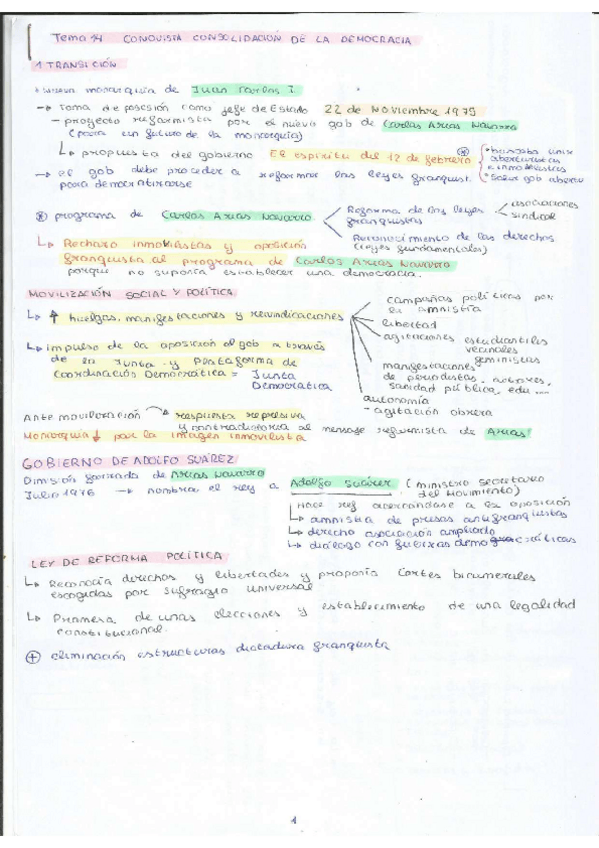 Tema 14 CONQUISTA CONSOLIDACIÓN DE LA DEMOCRACIA
1 TRANSICIÓN
monarquía de Juan Carlos I
→ Toma de posesión como jefe de Estado 22 de Noviembre 1975
- proyecto reformista por el nuevo gob de Carlos Arias Navarro
(para un futuro de la monarquía)
↳ propuesta del gobierno El espíritu del 12 de febrero ⊛
• buscaba unir
aberturistas
e inmovilistas
→ el gob debe proceder a reformar las leyes franquist.
para democratizarse
⊛ programa de Carlos Arias Navarro
Reforma de las leyes franquistas
asociaciones
sindical
Reconocimiento de los derechos
(leyes fundamentales)
↳ Rechazo inmobilistas y oposición
franquista al programa de Carlos Arias Navarro
porque no suponía establecer una democracia.
MOVILIZACIÓN SOCIAL Y POLÍTICA
↳ ↑ huelgas, manifestaciones y reivindicaciones
campañas políticas por
la amnistía
libertad
agitaciones estudiantiles
vecinales
feministas
manifestaciones
de periodistas, actores,
sanidad pública, edu....
autonomía
- agitación obrera
↳ impulso de la oposición al gob a través
de la Junta y Plataforma de
Coordinación Democrática = Junta
Democrática
Ante movilización → respuesta represiva
y contradictoria al mensaje reformista de Arias
Monarquía ↓ por la imagen inmovilista
GOBIERNO DE ADOLFO SUÁREZ
Dimisión forzada de Arias Navarro
Julio 1976 → nombra el rey a Adolfo Suárez (ministro secretario
del Movimiento)
Hace ref acercándose a la oposición
↳ amnistía de presos antifranquistas
↳ derecho asociación ampliado
↳ diálogo con fuerzas democráticas
LEY DE REFORMA POLÍTICA
↳ Reconocía derechos y libertades y proponía Cortes bicamerales
escogidas por sufragio universal
↳ Promesa de unas elecciones y establecimiento de una legalidad
constitucional.
⊕ eliminación estructuras dictadura franquista
1